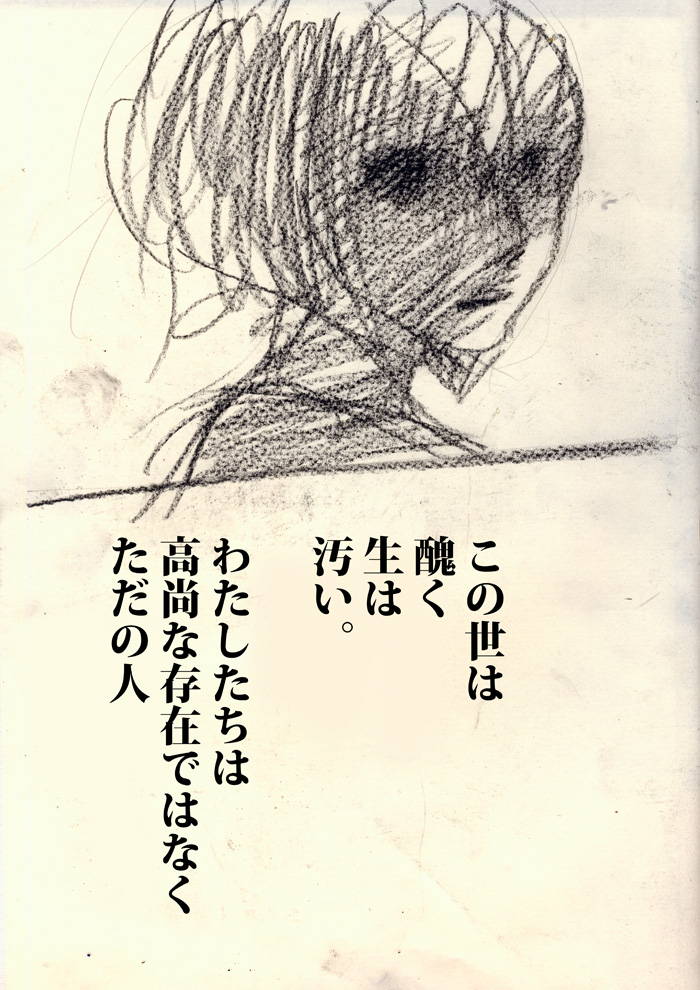 この世は
醜く
生は
汚い。
わたしたちは
高尚な存在ではなく
ただの人